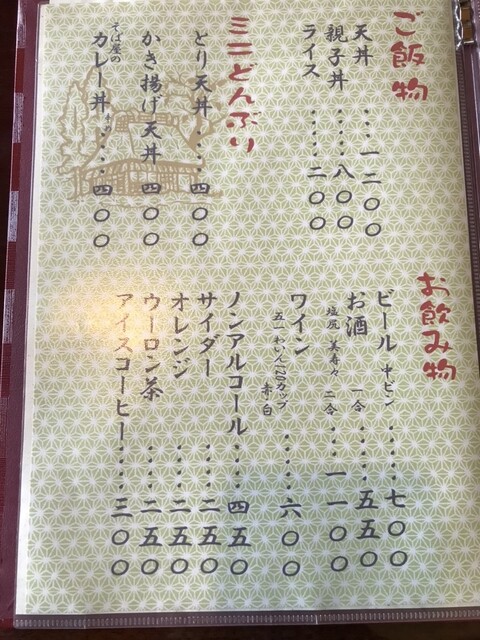 ご飯物
天丼・・・一二〇〇
親子丼・・・・・八〇〇
ライス・・・・・・二〇〇
ミニどんぶり
とり天丼・・・・四〇〇
かき揚げ天丼 四〇〇
そば屋のカレー丼・・・・四〇〇
お飲み物
ビール 中ビン・・・・・七〇〇
お酒 一合・・・・・五五〇
塩尻 美寿々 二合・・・一一〇〇
ワイン・・・・・・六〇〇
五一わいん120カップ 赤・白
ノンアルコール・・・・四五〇
サイダー・・・・・二五〇
オレンジ・・・・・二五〇
ウーロン茶・・・・・二五〇
アイスコーヒー・・・・三〇〇